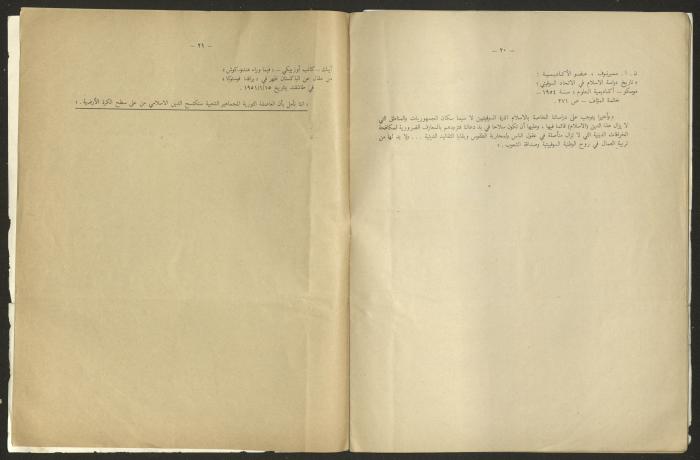 — ٢٠ —
ن . ا . سميرنوف ، عضو الأكاديمية :
« تاريخ دراسة الاسلام في الاتحاد السوفيتي »
موسكو – أكاديمية العلوم ؛ سنة ١٩٥٤ –
خاتمة المؤلف – ص ٢٧١
« وأخيرا يتوجب على دراساتنا الخاصة بالاسلام افادة السوفيتيين لا سيما سكان الجمهوريات والمناطق التي
لا يزال هذا الدين (الاسلام) قائما فيها ، وعليها أن تكون سلاحا في يد دعاتنا فتزيدهم بالمعارف الضرورية لمكافحة
الخرافات الدينية التي لا تزال متأصلة في عقول الناس ولمحاربة الطقوس وبقايا التقاليد الدينية ... ولا بد لها من
تربية العمال في روح الوطنية السوفيتية وصداقة الشعوب . »
— ٢١ —
أيبك – كاتب أوزبيكي – « فيما وراء هندوكوش »
من مقال عن الباكستان ظهر في « برافدا فوستوكا »
في طاشقند بتاريخ ١٩٥١/١/١٥ .
« اننا نأمل بأن العاصفة الثورية للجماهير الشعبية ستكتسح الدين الاسلامي من على سطح الكرة الأرضية . »